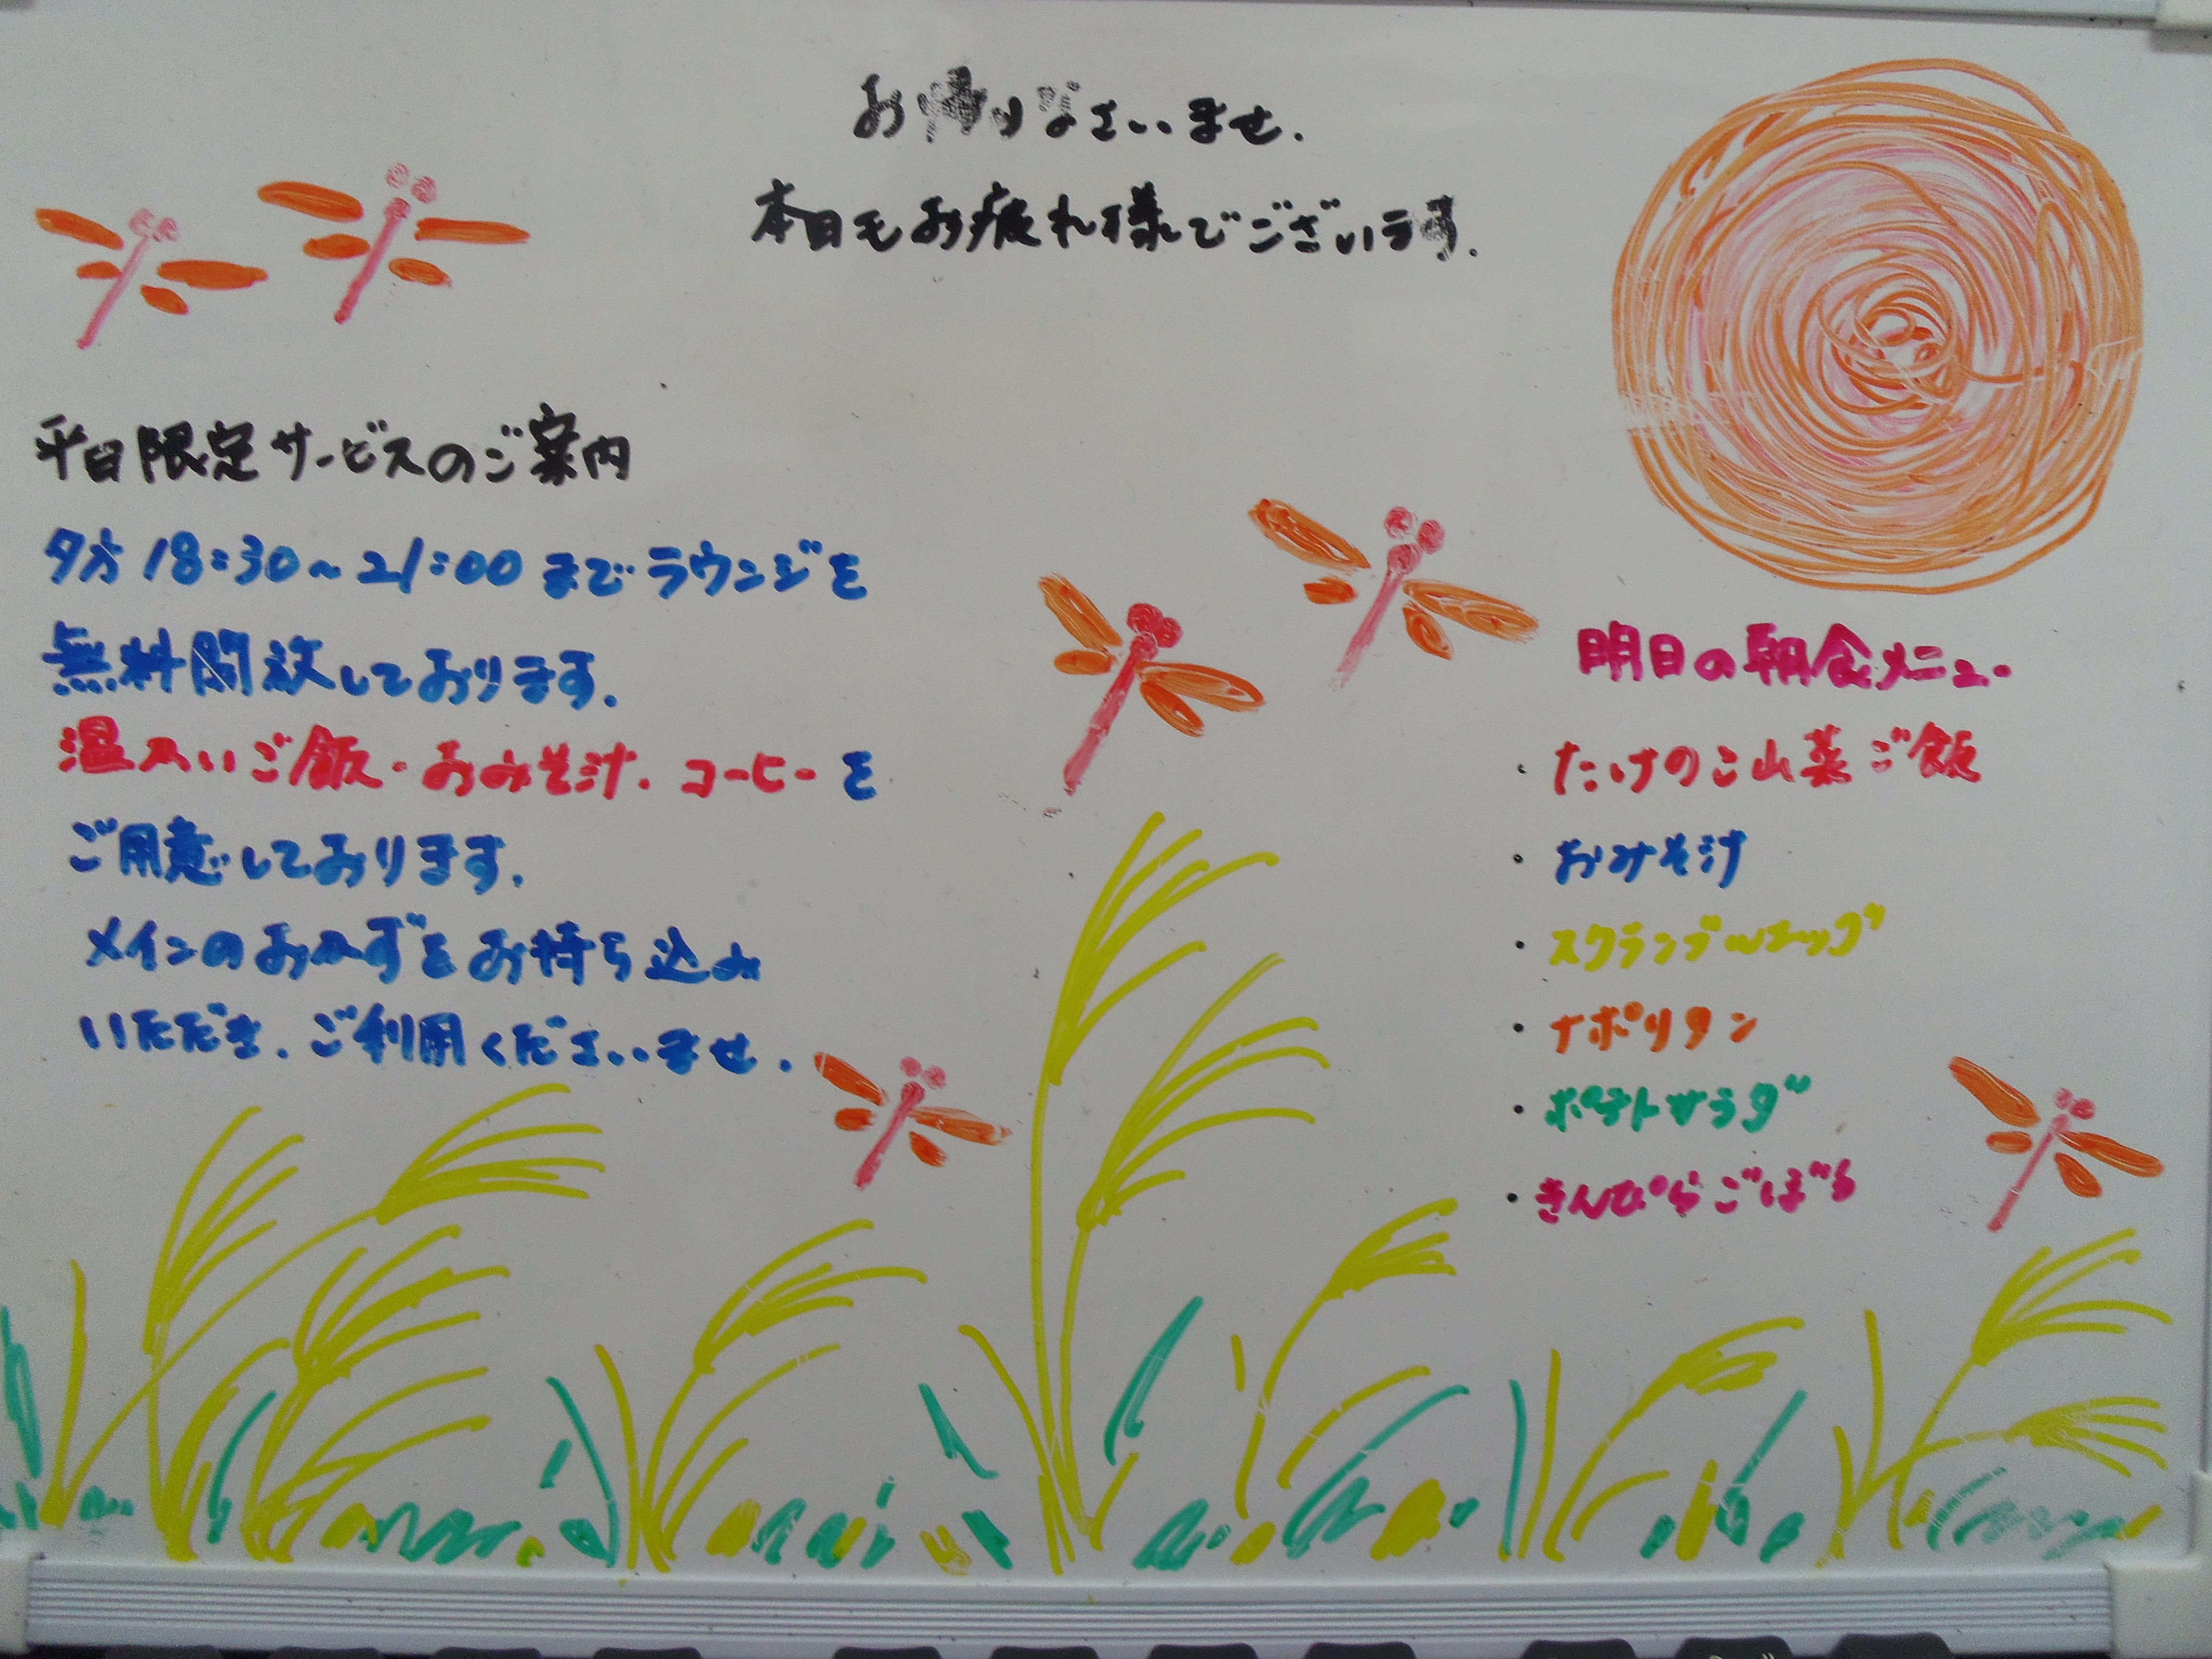 お帰りなさいませ.
本日もお疲れ様でございます.
平日限定サービスのご案内
夕方 18:30~21:00 までラウンジを
無料開放しております.
温かいご飯・おみそ汁.コーヒーを
ご用意しております.
メインのおかずをお持ち込み
いただき.ご利用くださいませ.
明日の朝食メニュー
・たけのこ山菜ご飯
・おみそ汁
・スクランブルエッグ
・ナポリタン
・ポテトサラダ
・きんぴらごぼう